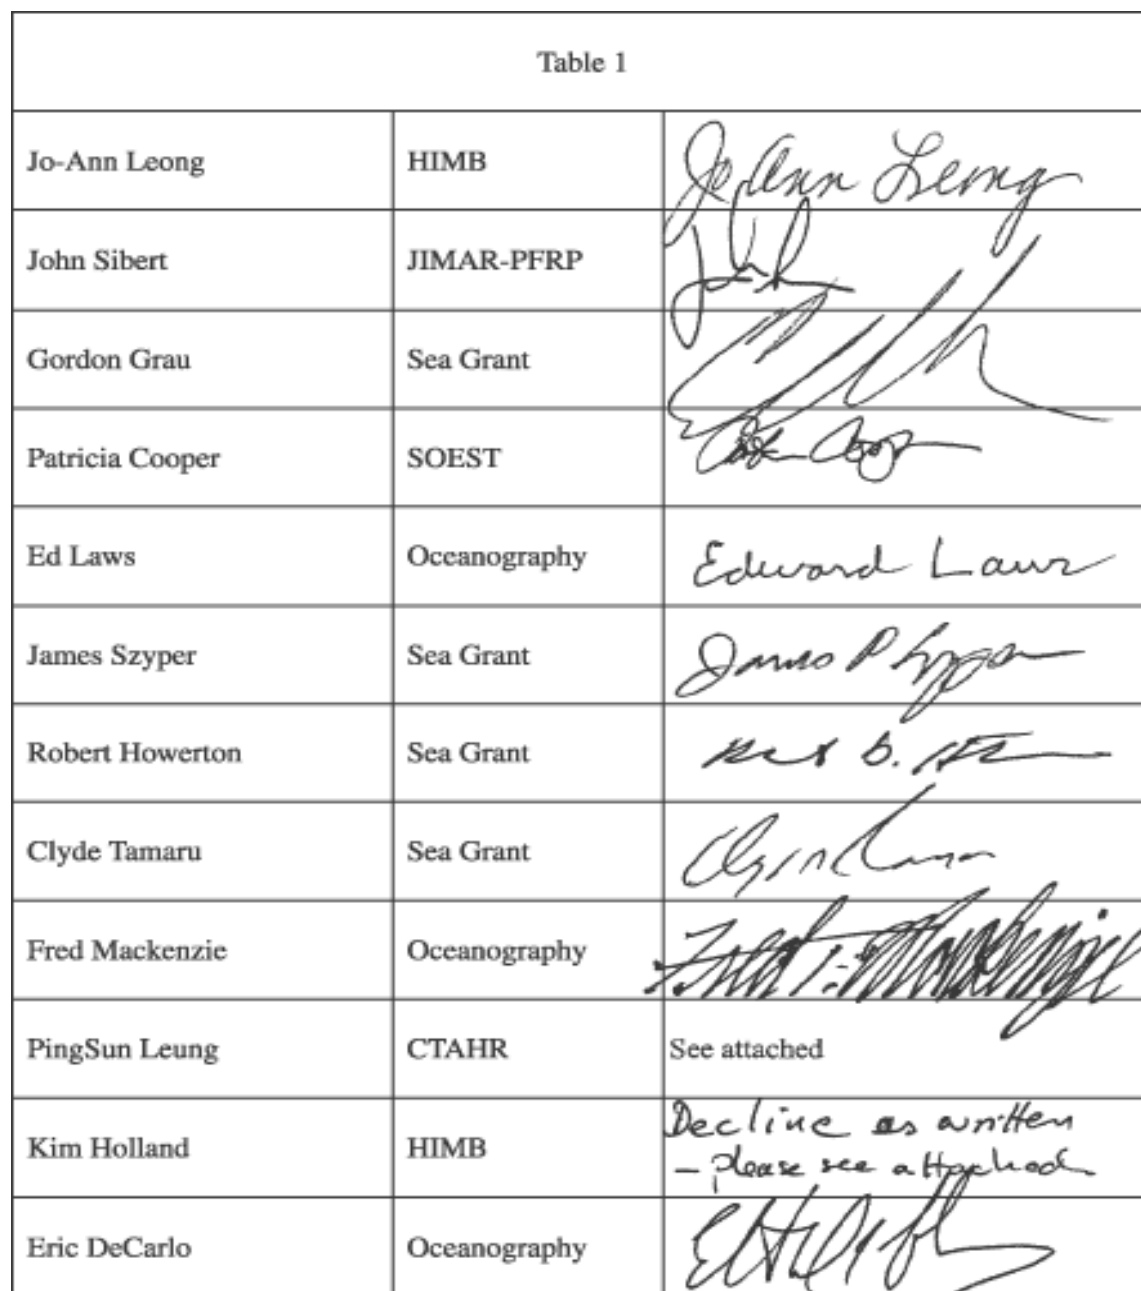 Table 1
Jo-Ann Leong HIMB JoAnn Leong
John Sibert JIMAR-PFRP
Gordon Grau Sea Grant
Patricia Cooper SOEST
Ed Laws Oceanography Edward Laws
James Szyper Sea Grant James P Szyper
Robert Howerton Sea Grant
Clyde Tamaru Sea Grant
Fred Mackenzie Oceanography Fred T. Mackenzie
PingSun Leung CTAHR See attached
Kim Holland HIMB Decline as written
– please see attached
Eric DeCarlo Oceanography